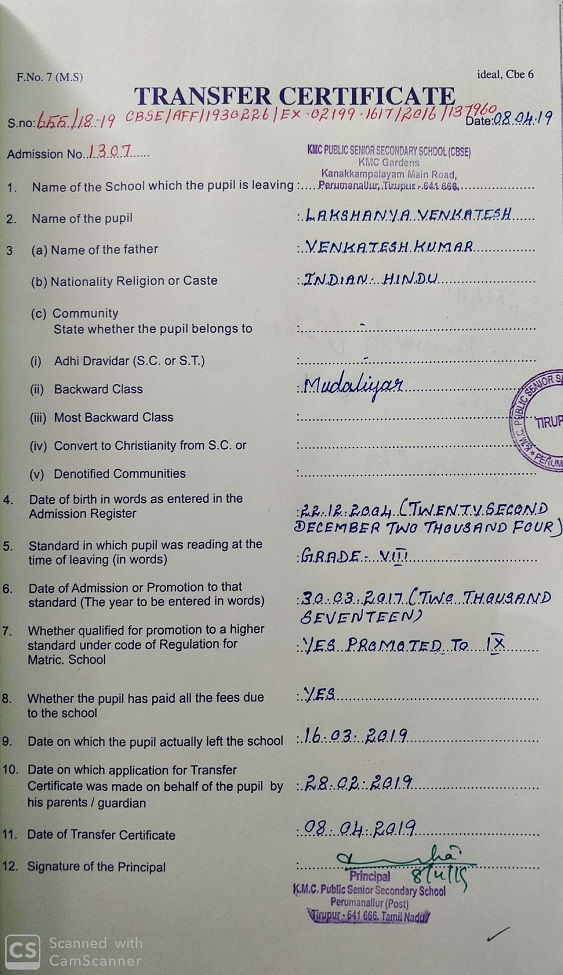 F.No. 7 (M.S)
ideal, Cbe 6
TRANSFER CERTIFICATE
S.no: 655/18-19 CBSE/AFF/1930226/EX-02199-1617/2016/137960 Date: 08.04.19
Admission No. 1307
KMC PUBLIC SENIOR SECONDARY SCHOOL (CBSE)
KMC Gardens
Kanakkampalayam Main Road,
1. Name of the School which the pupil is leaving : Perumanallur, Tirupur - 641 666.
2. Name of the pupil : LAKSHANYA VENKATESH
3 (a) Name of the father : VENKATESH KUMAR
(b) Nationality Religion or Caste : INDIAN - HINDU
(c) Community
State whether the pupil belongs to : -
(i) Adhi Dravidar (S.C. or S.T.) : -
(ii) Backward Class : Mudaliyar
(iii) Most Backward Class :
(iv) Convert to Christianity from S.C. or :
(v) Denotified Communities :
K.M.C. PUBLIC SENIOR
TIRUP
4. Date of birth in words as entered in the
Admission Register : 22.12.2004 (TWENTY SECOND
DECEMBER TWO THOUSAND FOUR)
5. Standard in which pupil was reading at the
time of leaving (in words) : GRADE - VIII
6. Date of Admission or Promotion to that
standard (The year to be entered in words) : 30.03.2017 (TWO THOUSAND
SEVENTEEN)
7. Whether qualified for promotion to a higher
standard under code of Regulation for : YES PROMOTED TO IX
Matric. School
8. Whether the pupil has paid all the fees due : YES
to the school
9. Date on which the pupil actually left the school : 16.03.2019
10. Date on which application for Transfer
Certificate was made on behalf of the pupil by : 28.02.2019
his parents / guardian
11. Date of Transfer Certificate : 08.04.2019
12. Signature of the Principal :
Principal 8/4/19
K.M.C. Public Senior Secondary School
Perumanallur (Post)
Tirupur - 641 666. Tamil Nadu
CS Scanned with
CamScanner